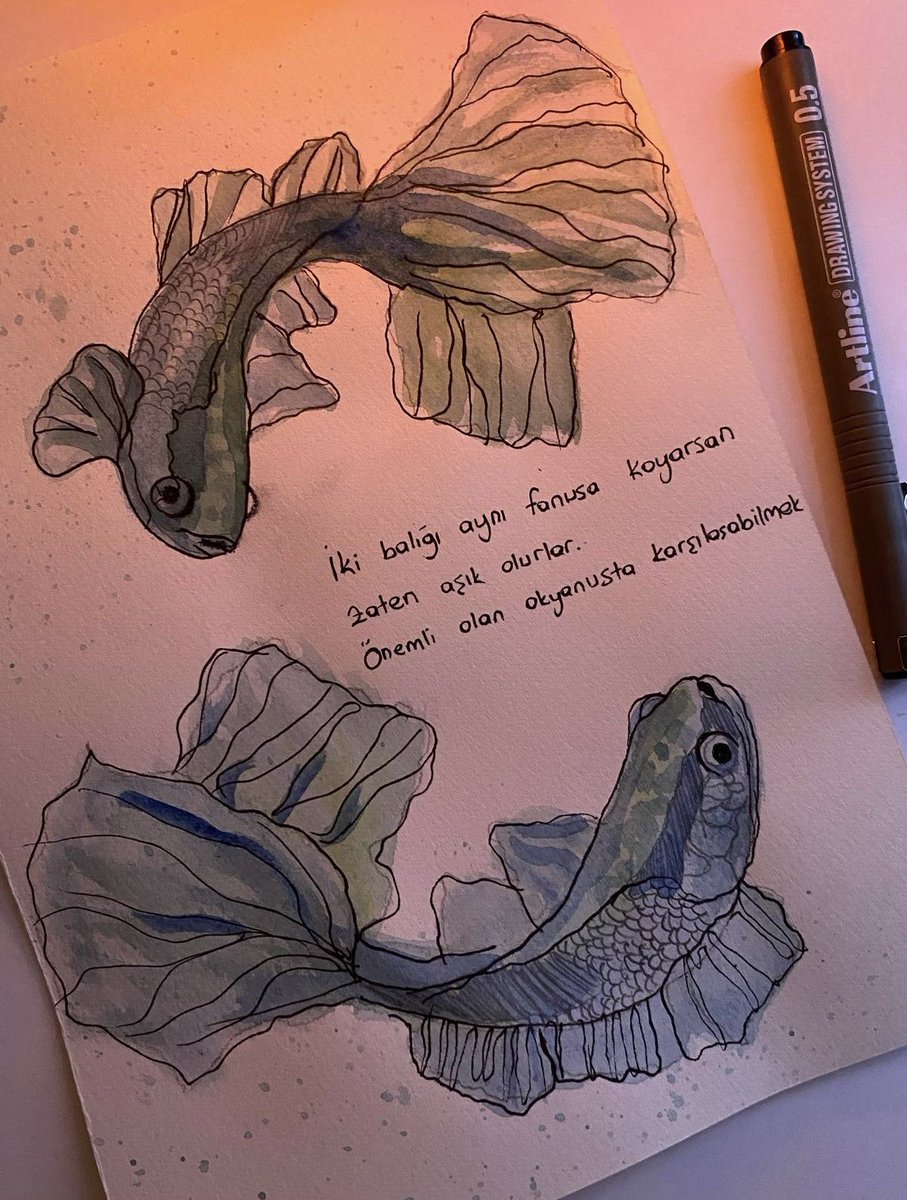 İki balığı aynı fanusa koyarsan
zaten aşık olurlar..
Önemli olan okyanusta karşılaşabilmek
Artline® DRAWING SYSTEM 0.5